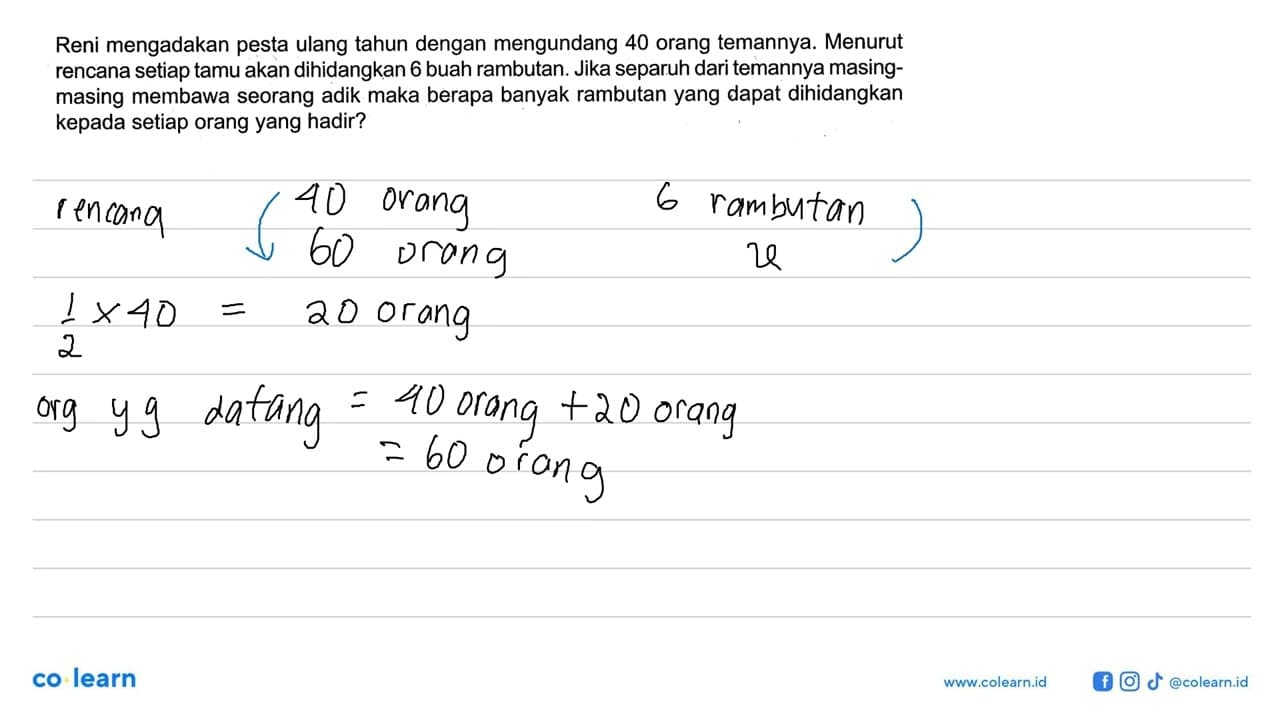 Reni mengadakan pesta ulang tahun dengan mengundang 40 orang temannya. Menurut
rencana setiap tamu akan dihidangkan 6 buah rambutan. Jika separuh dari temannya masing-
masing membawa seorang adik maka berapa banyak rambutan yang dapat dihidangkan
kepada setiap orang yang hadir?
rencana 40 orang 6 rambutan
60 orang x
1/2 × 40 = 20 orang
org yg datang = 40 orang + 20 orang
= 60 orang
co learn
www.colearn.id @colearn.id